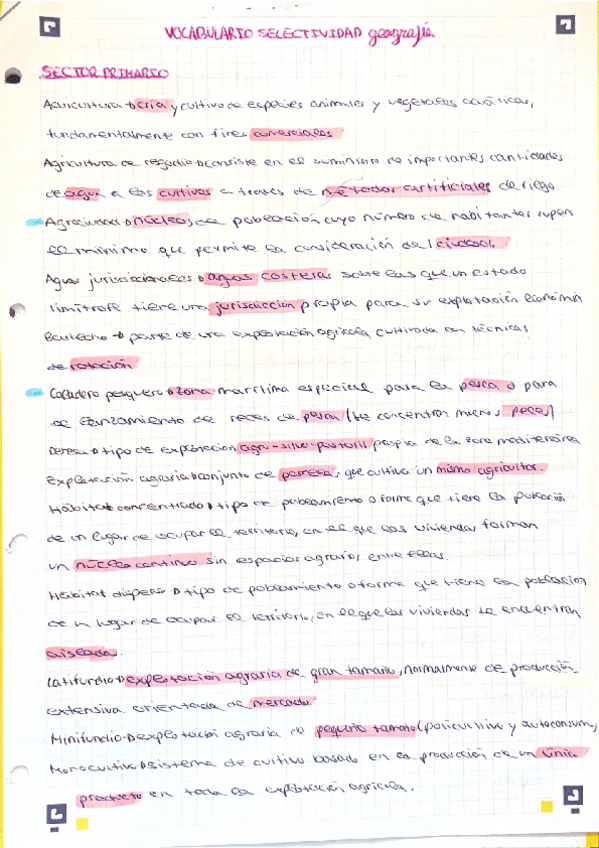 VOCABULARIO SELECTIVIDAD geografía
SECTOR PRIMARIO
Acuicultura → cría y cultivo de especies animales y vegetales acuáticas,
fundamentalmente con fines comerciales.
Agricultura de regadío → consiste en el suministro de importantes cantidades
de agua a los cultivos a través de métodos artificiales de riego
Agrociudad → núcleos de población cuyo número de habitantes supera
el mínimo que permite la consideración de ciudad.
Aguas jurisdiccionales → aguas costeras sobre las que un estado
limítrofe tiene una jurisdicción propia para su explotación económica
Barbecho → parte de una explotación agrícola cultivada con técnicas
de rotación
Caladero pesquero → zona marítima especial para la pesca o para
el lanzamiento de redes de pesca (se concentran muchos peces)
Dehesa → tipo de explotación agro-silvo-pastoril propia de la zona mediterránea
Explotación agraria → conjunto de parcelas que cultiva un mismo agricultor.
Hábitat concentrado → tipo de poblamiento o forma que tiene la población
de un lugar de ocupar el territorio, en el que las viviendas forman
un núcleo continuo sin espacios agrarios entre ellas.
Hábitat disperso → tipo de poblamiento o forma que tiene la población
de un lugar de ocupar el territorio, en el que las viviendas se encuentran
aisladas.
Latifundio → explotación agraria de gran tamaño, normalmente de producción
extensiva orientada de mercado.
Minifundio → explotación agraria de pequeño tamaño (policultivo y autoconsumo)
Monocultivo → sistema de cultivo basado en la producción de un único
producto en toda la explotación agrícola.